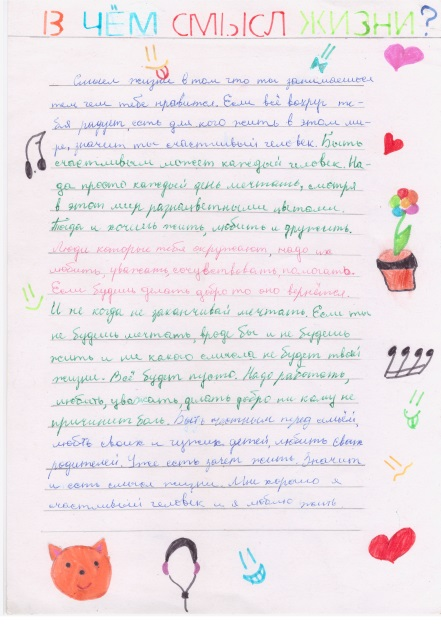 В ЧЁМ СМЫСЛ ЖИЗНИ?
Смысл жизни в том что ты занимаешься
тем чем тебе нравится. Если всё вокруг те-
бя радует, есть для кого жить в этом ми-
ре, значит ты счастливый человек. Быть
счастливым может каждый человек. На-
до просто каждый день мечтать, смотря
в этот мир разноцветными цветами.
Тогда и хочешь жить, любить и дружить.
Люди которые тебя окружают, надо их
любить, уважать, сочувствовать, помогать.
Если будешь делать добро то оно вернётся.
И не когда не заканчивай мечтать. Если ты
не будешь мечтать, вроде бы и не будешь
жить и ни какого смысла не будет твоей
жизни. Всё будет пусто. Надо работать,
любить, уважать, делать добро ни кому не
причинить боль. Быть
перед семьёй,
любть своих и чужих детей, любить своих
родителей. Уже есть зачем жить. Значит
и есть смысл жизни. Мне хорошо я
счастливый человек и я люблю жить.